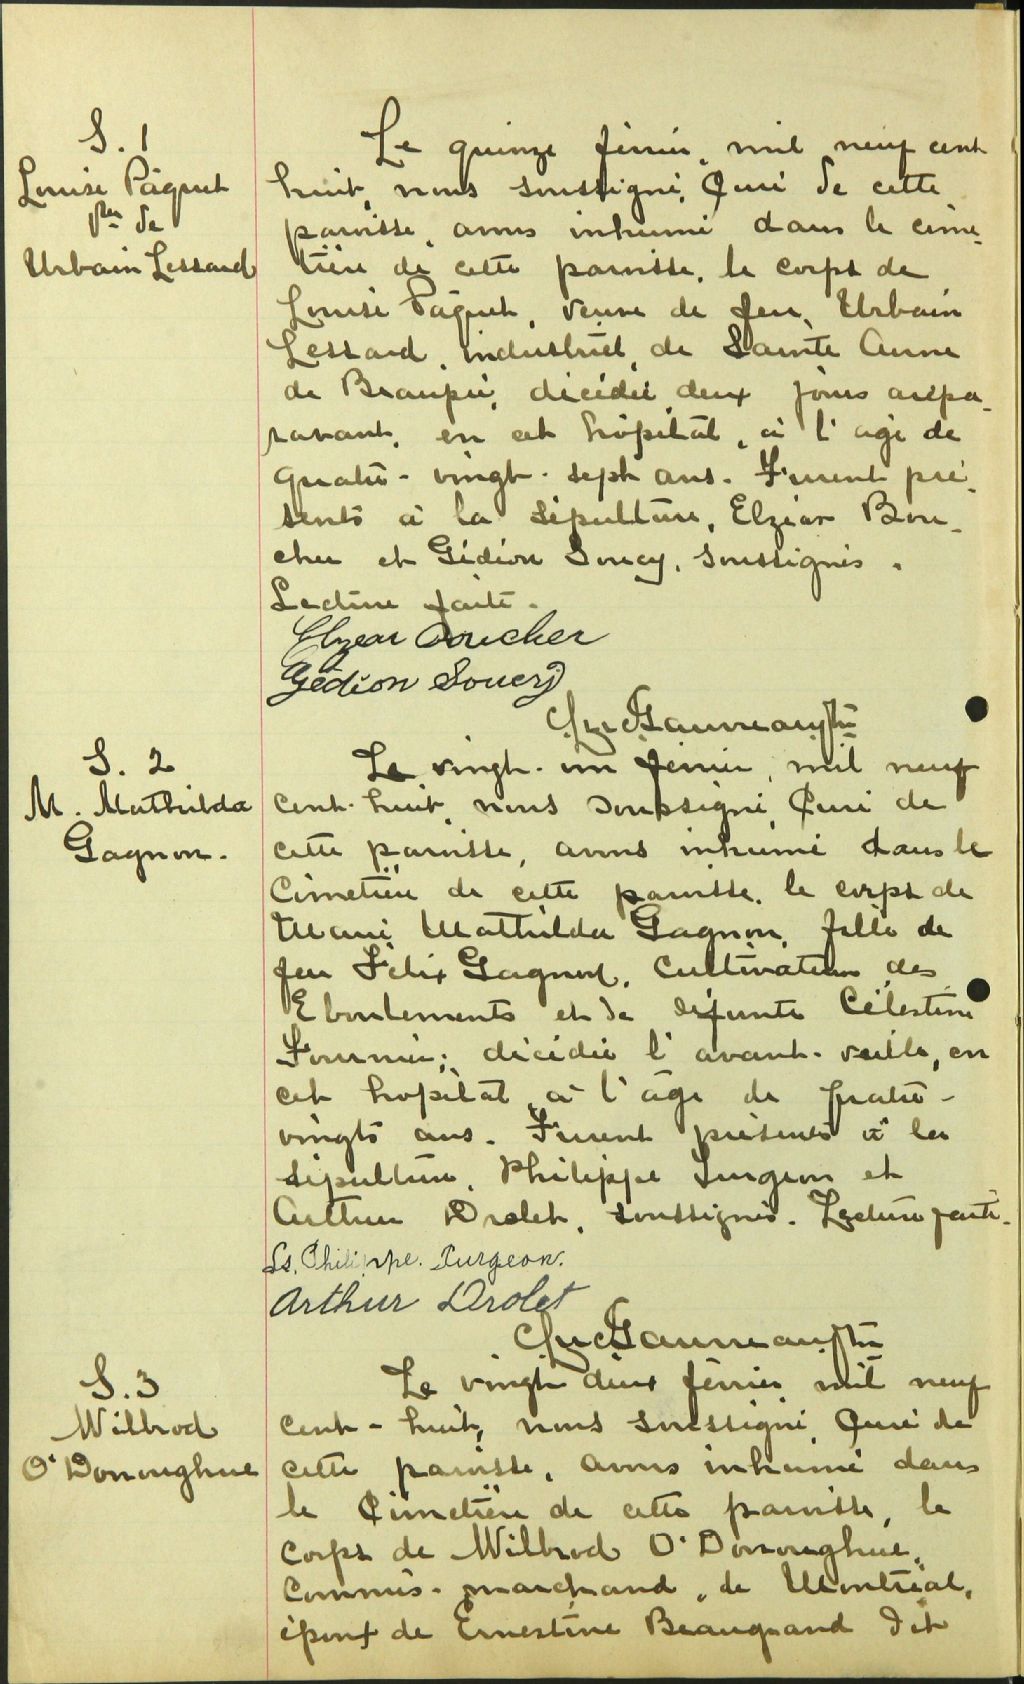 S. 1
Louise Pâquet
de
Urbain Lessard
Le quinze février, mil neuf cent
huit, nous soussigné, Curé de cette
paroisse, avons inhumé dans le cime-
tière de cette paroisse, le corps de
Louise Pâquet, veuve de feu, Urbain
Lessard, industriel, de Sainte Anne
de Beaupré, décédée, deux jours aupa-
ravant, en cet hôpital, à l'âge de
quatre-vingt-sept ans. Furent pré-
sents à la sépulture, Elzéar Bou-
cher et Gédéon Soucy, soussignés.
Lecture faite.
Elzear Boucher
Gédéon Soucy
S. 2
M. Mathilda
Gagnon.
Le vingt-un février, mil neuf
cent-huit, nous soussigné, Curé de
cette paroisse, avons inhumé dans le
Cimetière de cette paroisse, le corps de
Marie Mathilda Gagnon, fille de
feu Félix Gagnon, Cultivateur des
Eboulements et de défunte Célestine
Fournier; décédée l'avant-veille, en
cet hôpital, à l'âge de quatre-
vingts ans. Furent présents à la
sépulture, Philippe Turgeon et
Arthur Drolet, soussignés. Lecture faite.
Ls. Philippe. Turgeon.
Arthur Drolet
S. 3
Wilbrod
O'Donoughue
Le vingt deux février, mil neuf
cent-huit, nous soussigné, Curé de
cette paroisse, avons inhumé dans
le Cimetière de cette paroisse, le
corps de Wilbrod O'Donoughue,
commis-marchand, de Montréal,
époux de Ernestine Beaugrand dit